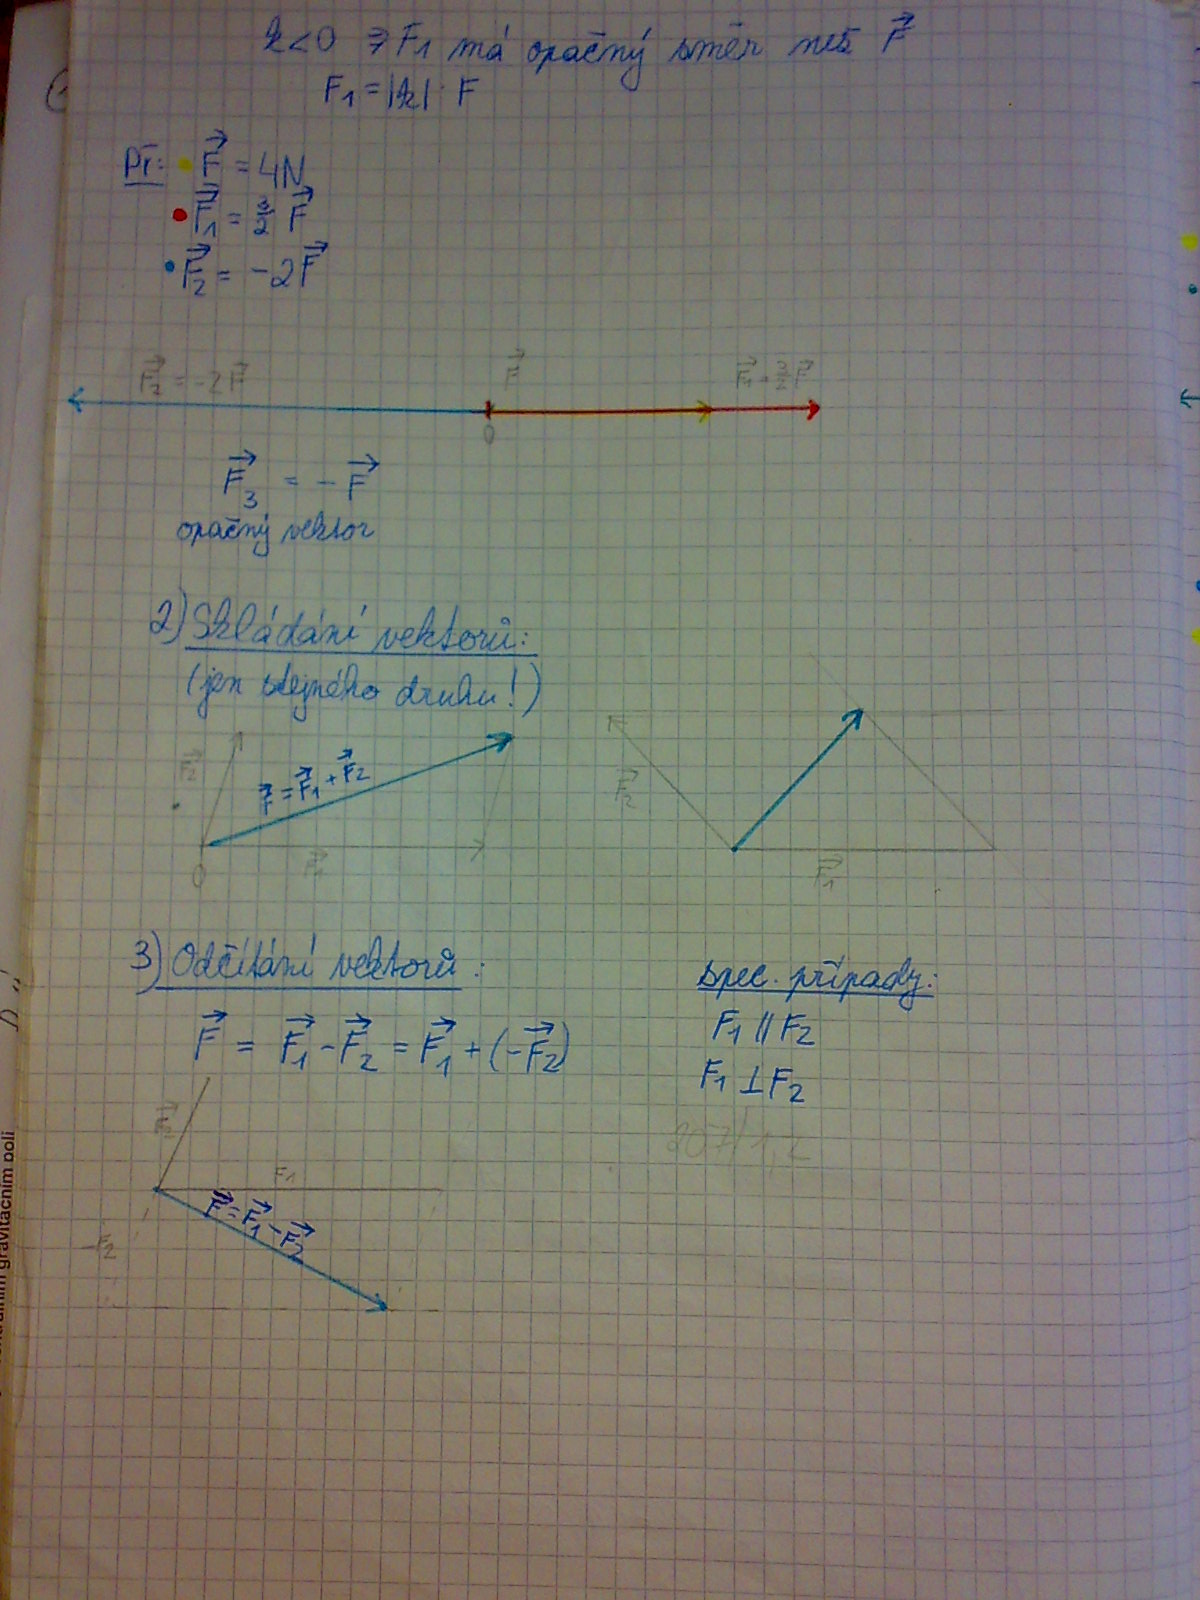 k<0 ⇒ F₁ má opačný směr než F⃗
F₁ = |k| · F
Př: F⃗ = 4N
F⃗₁ = 3/2 F⃗
F⃗₂ = -2F⃗
F⃗₂ = -2F⃗ F⃗ F⃗₁ = 3/2 F⃗
0
F⃗₃ = - F⃗
opačný vektor
2) Skládání vektorů:
(jen stejného druhu!)
F⃗₂ F⃗ = F⃗₁ + F⃗₂ F⃗₂
0 F⃗₁ F⃗₁
3) Odčítání vektorů:
F⃗ = F⃗₁ - F⃗₂ = F⃗₁ + (-F⃗₂)
spec. případy:
F₁ || F₂
F₁ ⊥ F₂
207/1,2
F⃗₂
F₁
F⃗ = F⃗₁ - F⃗₂
-F₂
gravitačním poli